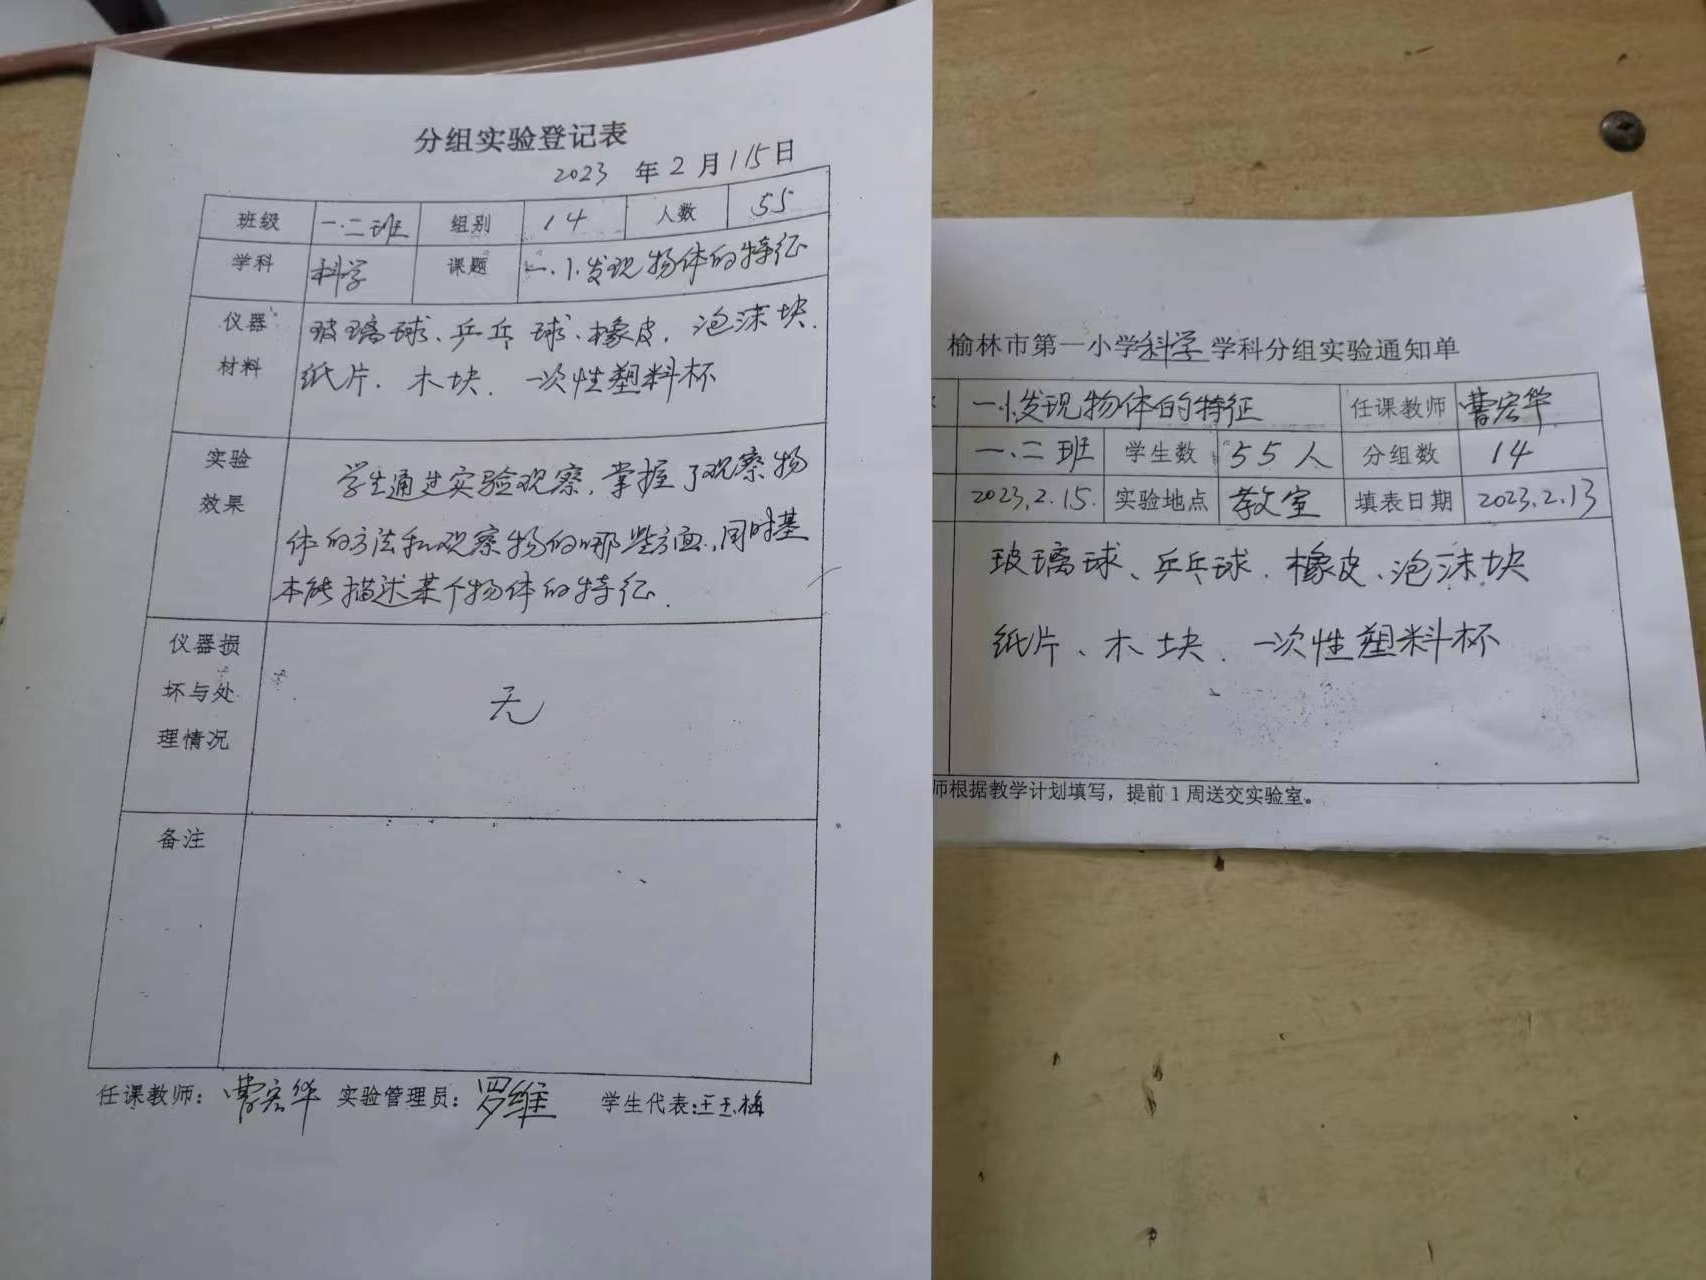 分组实验登记表
2023 年 2 月 15日
班级 一.二班 组别 14 人数 55
学科 科学 课题 一.1.发现物体的特征
仪器 玻璃球、乒乓球、橡皮、泡沫块.
材料 纸片、木块、一次性塑料杯
实验 学生通过实验观察,掌握了观察物
效果 体的方法和观察物的哪些方面,同时基
本能描述某个物体的特征.
仪器损
坏与处 无
理情况
备注
任课教师: 曹宏华 实验管理员: 罗维 学生代表:王玉梅
榆林市第一小学科学学科分组实验通知单
一.1.发现物体的特征 任课教师 曹宏华
一.二班 学生数 55人 分组数 14
2023.2.15. 实验地点 教室 填表日期 2023.2.13
玻璃球、乒乓球、橡皮、泡沫块
纸片、木块、一次性塑料杯
师根据教学计划填写，提前1周送交实验室。